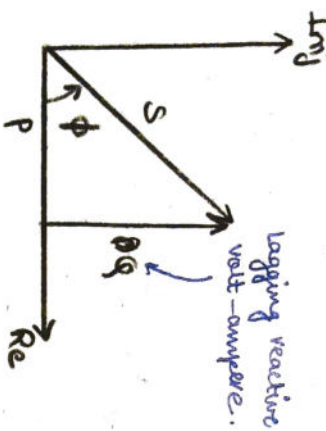 Imj
S
ϕ
P
Q
Re
Lagging reactive
volt-ampere.